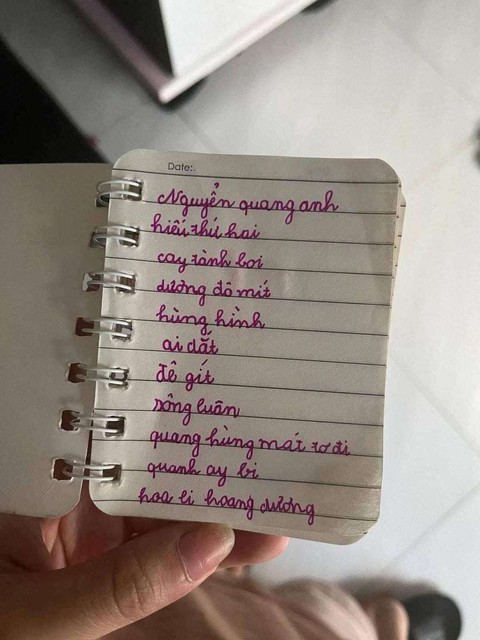 Date:
Nguyển quang anh
hiếu thứ hai
cay rành boi
dương đô mít
hùng hình
ai dắt
đê gít
sông luân
quang hùng mát tơ đi
quanh ay bi
hoa li hoang dương